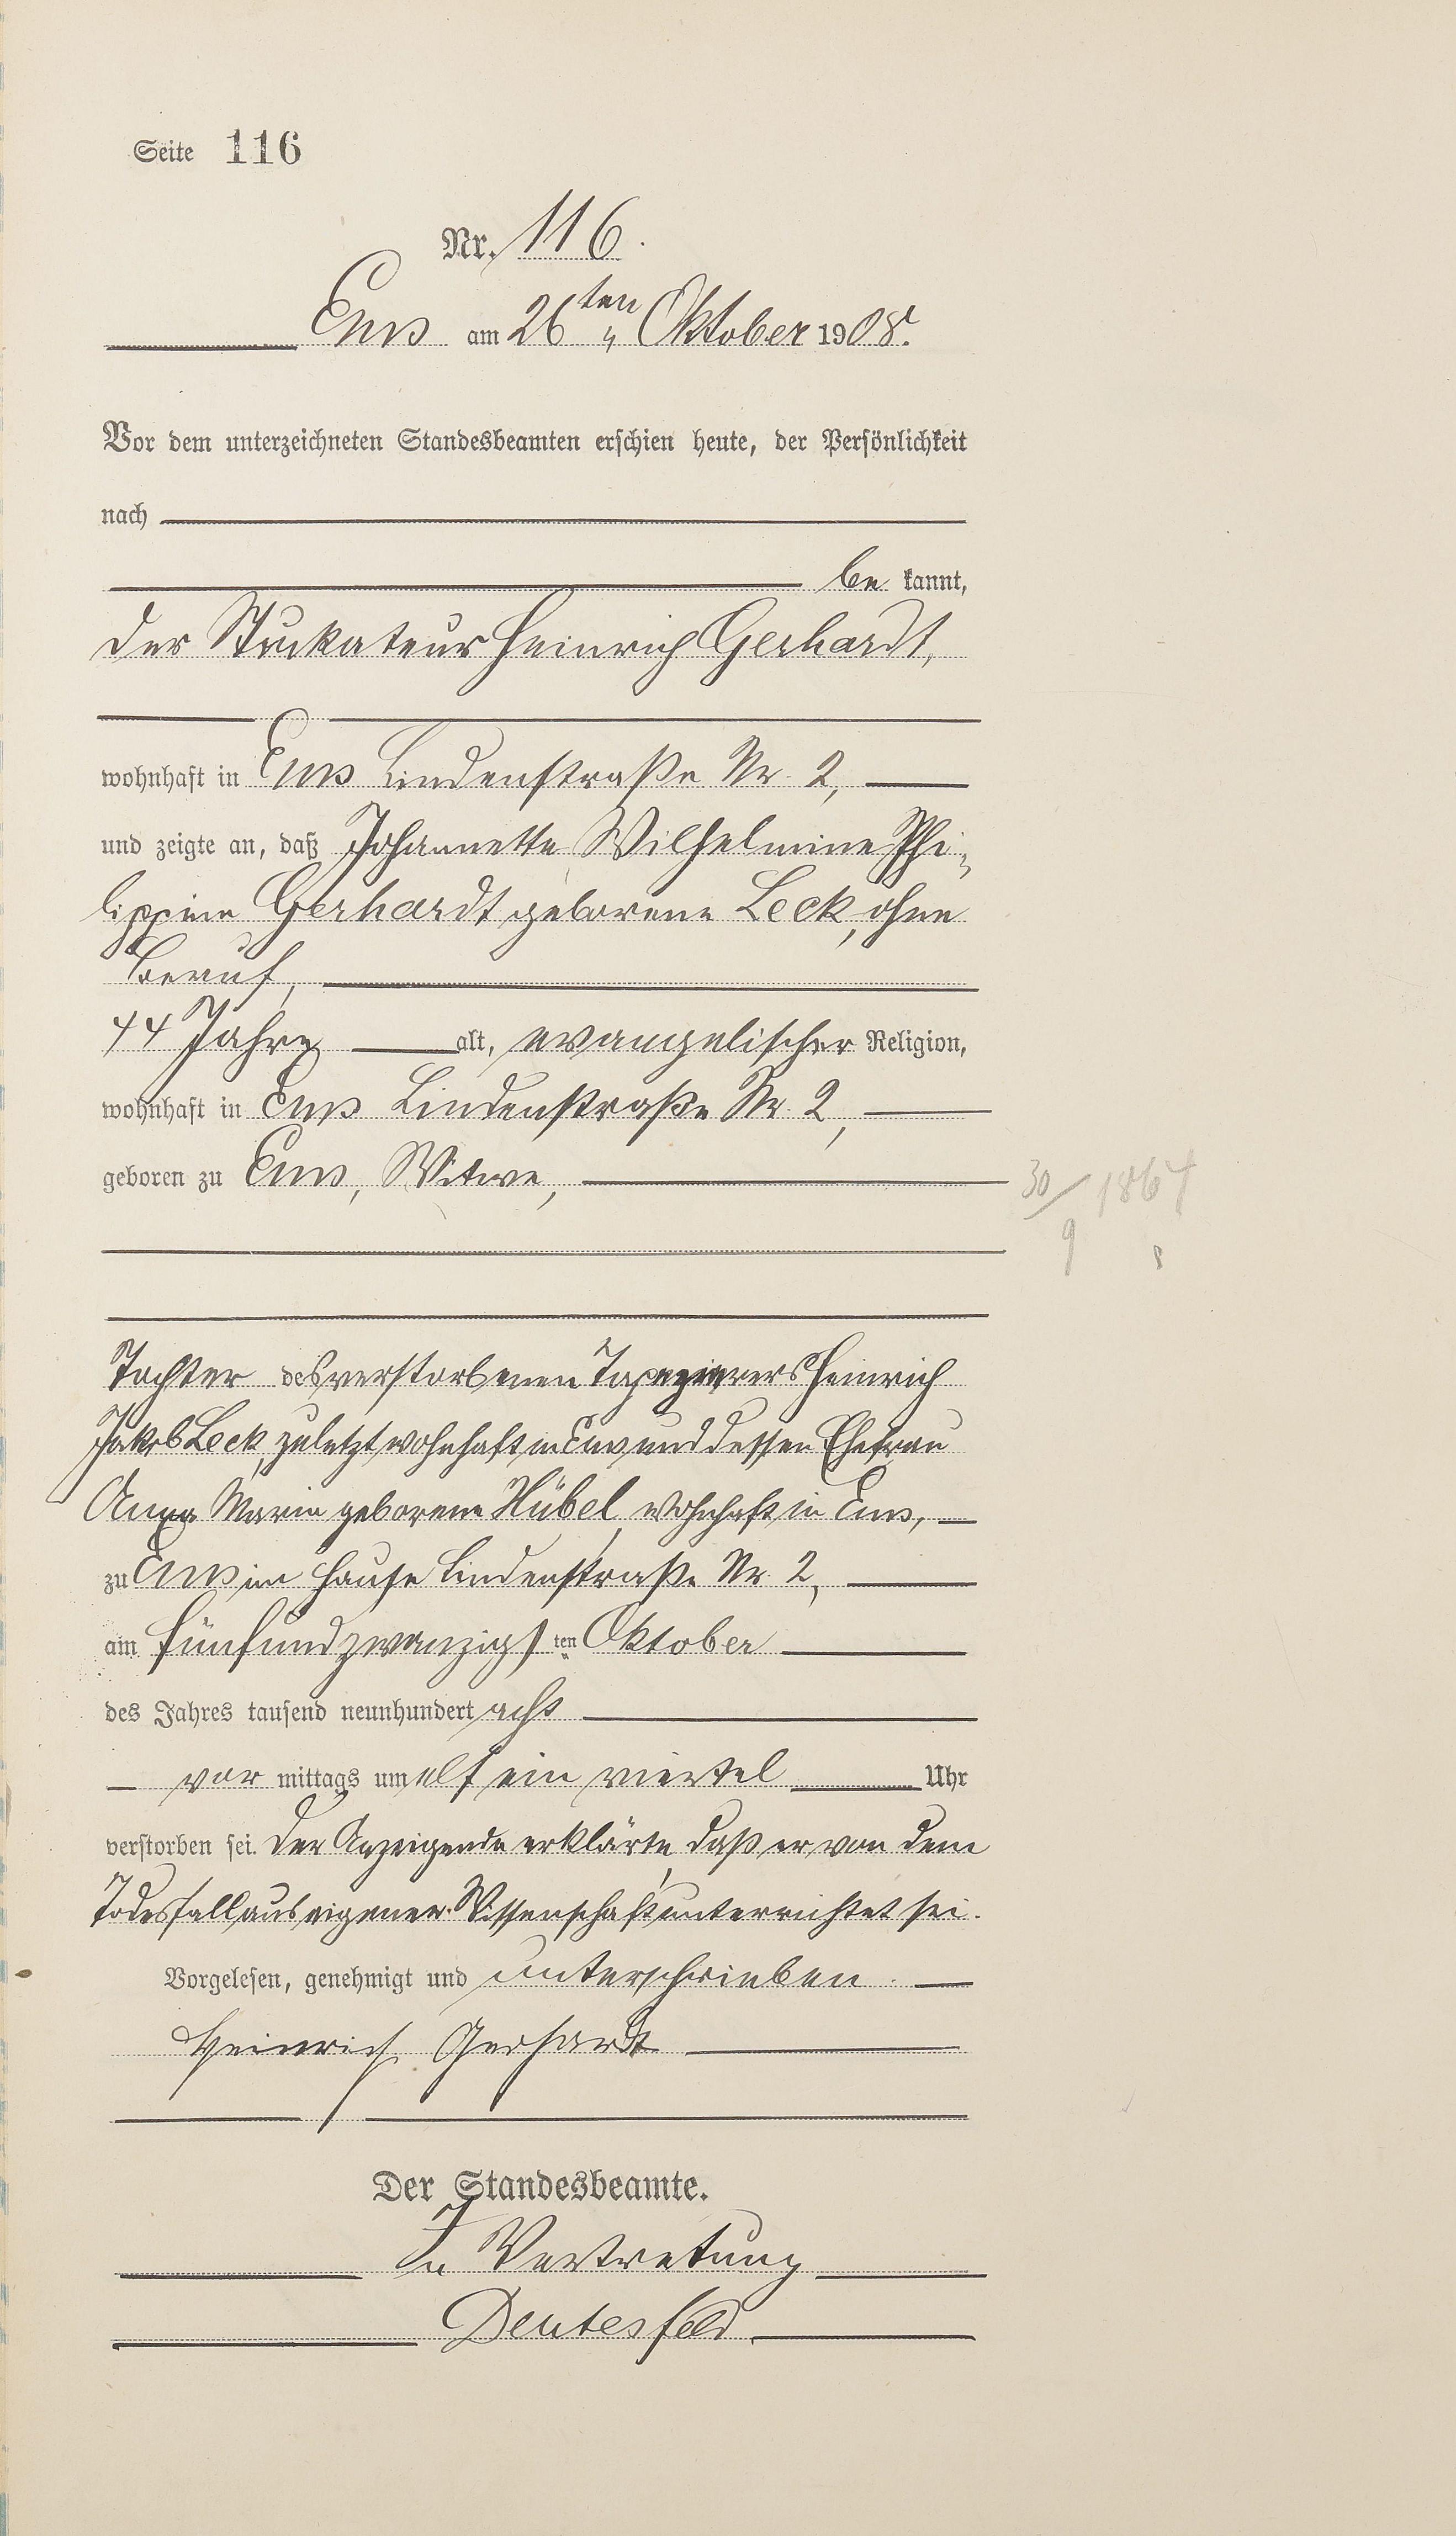 Seite 116
Nr. 116.
Ems am 26ten Oktober 1908.
Vor dem unterzeichneten Standesbeamten erschien heute, der Persönlichkeit
nach
be kannt,
der Stukateur Heinrich Gerhardt,
wohnhaft in Ems Lindenstraße Nr. 2,
und zeigte an, daß Johannette Wilhelmine Phi-
lippine Gerhardt geborene Leck, ohne
Beruf,
44 Jahre alt, evangelischer Religion,
wohnhaft in Ems Lindenstraße Nr. 2,
geboren zu Ems, Witwe,
30/9 1864
Tochter des verstorbenen Tapezierers Heinrich
Jakob Leck, zuletzt wohnhaft in Ems und dessen Ehefrau
Anna Maria geborene Hübel, wohnhaft in Ems,
zu Ems im Hause Lindenstraße Nr. 2,
am fünfundzwanzigsten Oktober
des Jahres tausend neunhundert acht
vor mittags um elf ein viertel Uhr
verstorben sei. Der Anzeigende erklärte, daß er von dem
Todesfall aus eigener Wissenschaft unterrichtet sei.
Vorgelesen, genehmigt und unterschrieben.
Heinrich Gerhardt
Der Standesbeamte.
In Vertretung
Deutesfeld